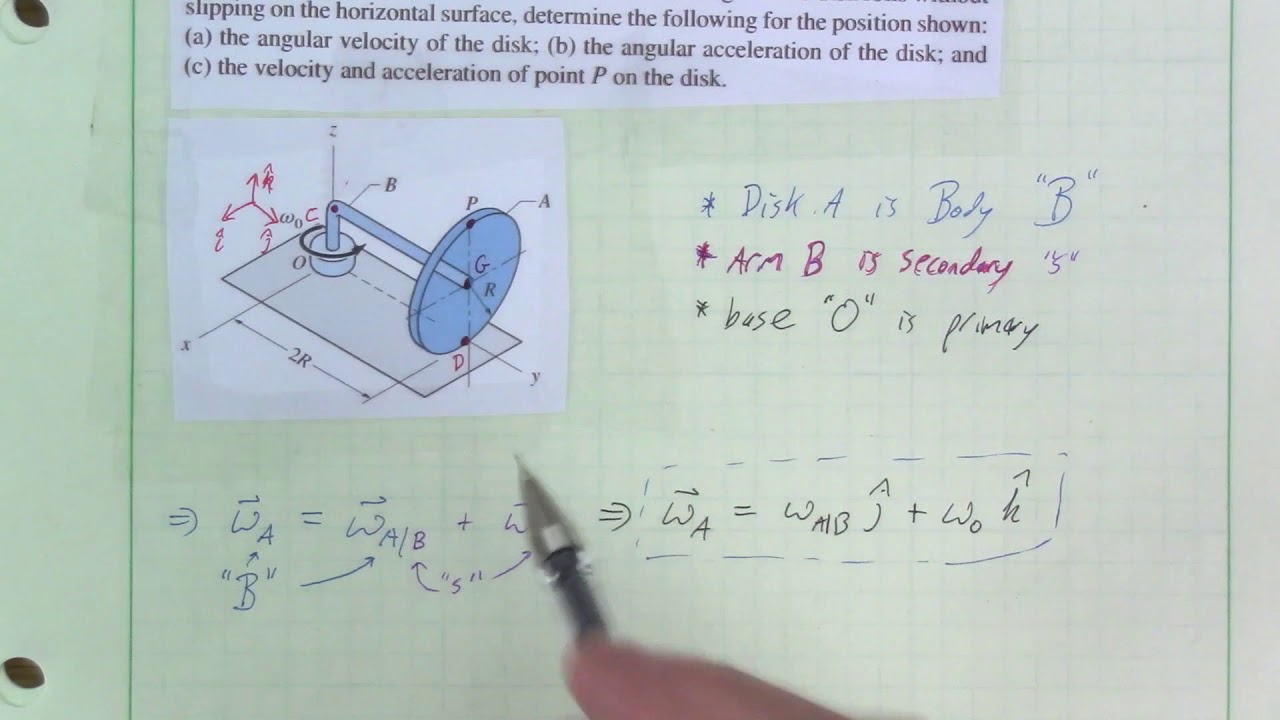 slipping on the horizontal surface, determine the following for the position shown:
(a) the angular velocity of the disk; (b) the angular acceleration of the disk; and
(c) the velocity and acceleration of point P on the disk.
z
B
k̂
P
A
ω₀
C
î
ĵ
G
O
R
x
2R
D
y
* Disk A is Body "B"
* Arm B is secondary "s"
* base "O" is primary
⇒ ω⃗_A = ω⃗_A/B + ω⃗
"B" "s"
⇒ ω⃗_A = ω_A/B ĵ + ω₀ k̂